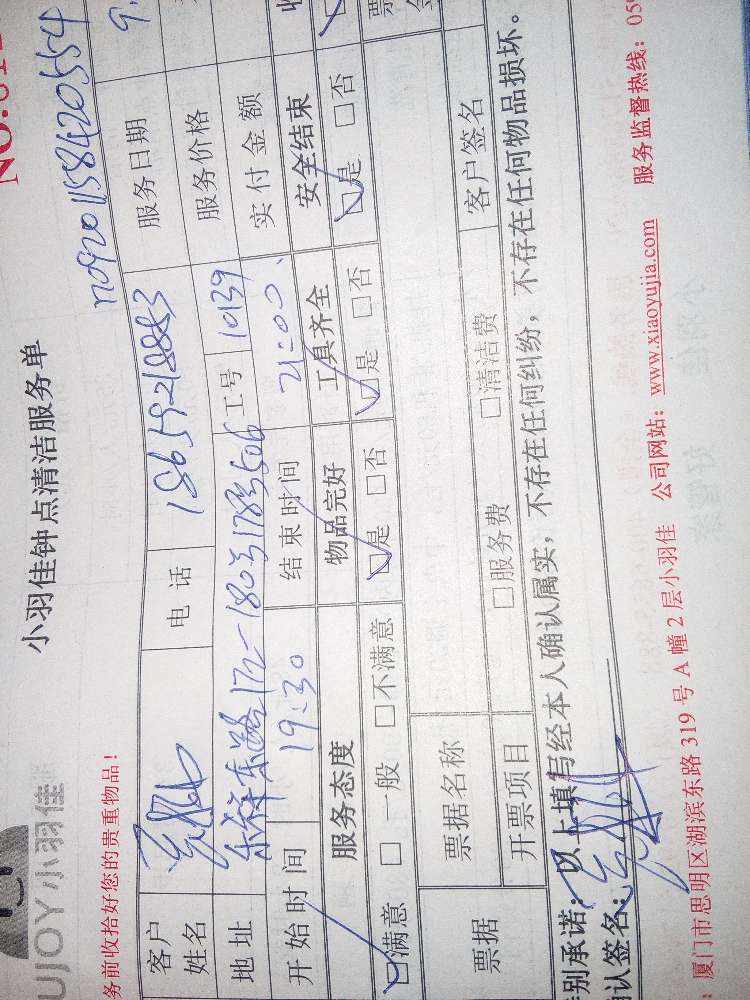 UJOY小羽佳
小羽佳钟点清洁服务单
NO:01
n09201158420554
务前收拾好您的贵重物品!
客户姓名 电话 18659218883 服务日期 9.
地址 172-180号178号506 工号 10139 服务价格
开始时间 19:30 结束时间 21:00 实付金额
服务态度 物品完好 工具齐全 安全结束
☑满意 □一般 □不满意 ☑是 □否 ☑是 □否 ☑是 □否
票据 票据名称
开票项目 □服务费 □清洁费 客户签名
别承诺:以上填写经本人确认属实,不存在任何纠纷,不存在任何物品损坏。
认签名:
:厦门市思明区湖滨东路 319 号 A 幢 2 层小羽佳 公司网站:www.xiaoyujia.com 服务监督热线:059